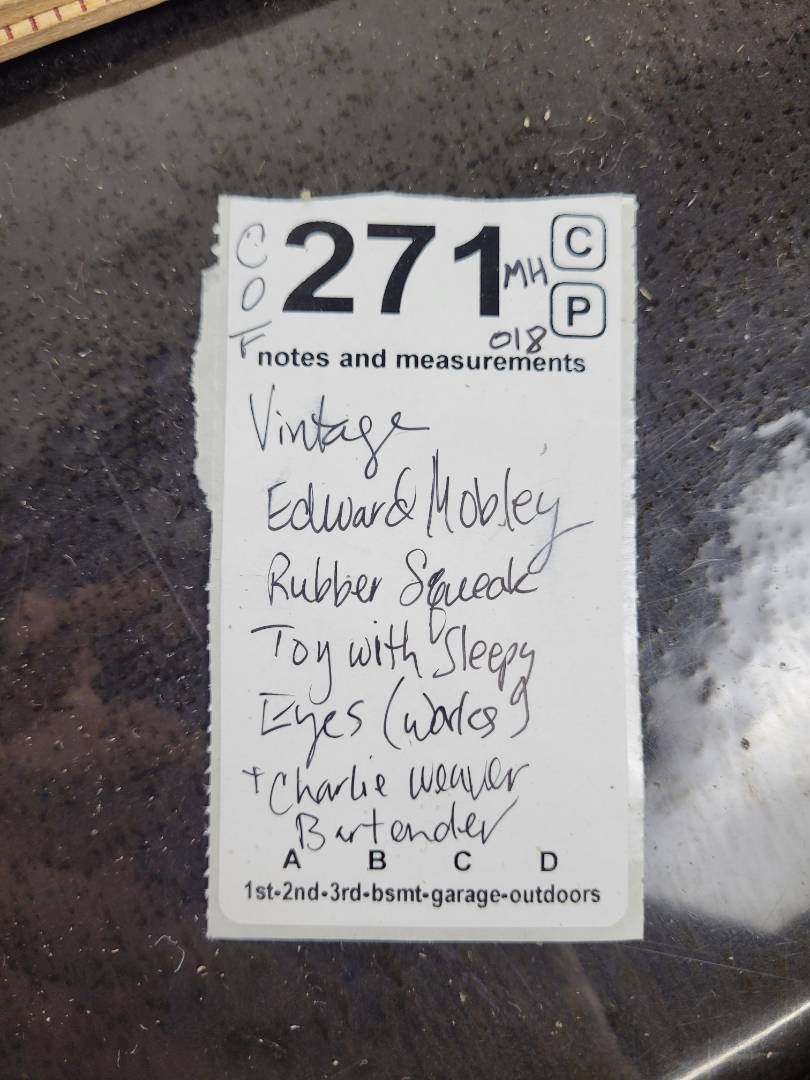 C O F
271
MH
018
C
P
notes and measurements
Vintage
Edward Mobley
Rubber Squeak
Toy with Sleepy
Eyes (Works)
+ Charlie Weaver
Bartender
A B C D
1st-2nd-3rd-bsmt-garage-outdoors